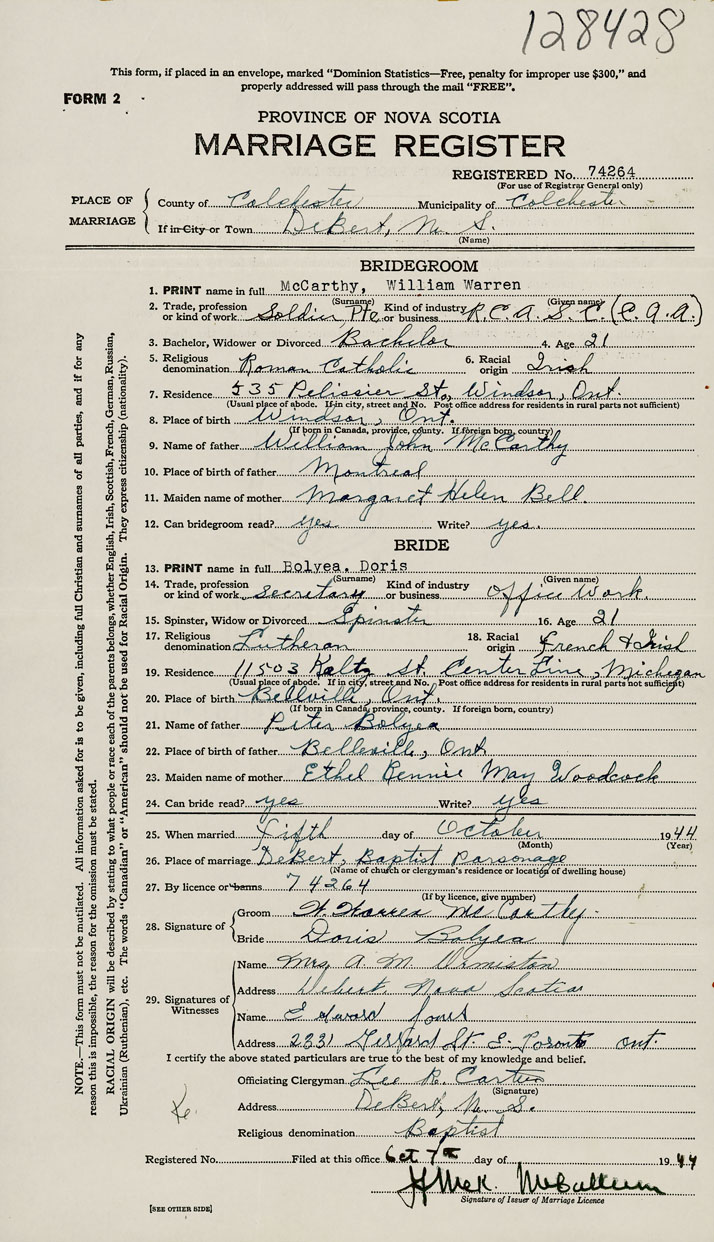 128428
This form, if placed in an envelope, marked "Dominion Statistics—Free, penalty for improper use $300," and
properly addressed will pass through the mail "FREE".
FORM 2
PROVINCE OF NOVA SCOTIA
MARRIAGE REGISTER
REGISTERED No. 74264
(For use of Registrar General only)
PLACE OF MARRIAGE
County of Colchester Municipality of Colchester
If in City or Town DeBert, N. S.
(Name)
BRIDEGROOM
1. PRINT name in full McCarthy, William Warren
(Surname) (Given name)
2. Trade, profession or kind of work Soldier Pte Kind of industry or business R.C.A.S.C. (C.A.A.)
3. Bachelor, Widower or Divorced Bachelor 4. Age 21
5. Religious denomination Roman Catholic 6. Racial origin Irish
7. Residence 535 Pelissier St., Windsor, Ont.
(Usual place of abode. If in city, street and No. Post office address for residents in rural parts not sufficient)
8. Place of birth Windsor, Ont.
(If born in Canada, province, county. If foreign born, country)
9. Name of father William John McCarthy
10. Place of birth of father Montreal
11. Maiden name of mother Margaret Helen Bell.
12. Can bridegroom read? yes Write? yes.
BRIDE
13. PRINT name in full Bolyea. Doris
(Surname) (Given name)
14. Trade, profession or kind of work Secretary Kind of industry or business Office Work.
15. Spinster, Widow or Divorced Spinster 16. Age 21
17. Religious denomination Lutheran 18. Racial origin French & Irish
19. Residence 11503 Kaltz St. Center Line, Michigan
(Usual place of abode. If in city, street and No. Post office address for residents in rural parts not sufficient)
20. Place of birth Bellville, Ont.
(If born in Canada, province, county. If foreign born, country)
21. Name of father Peter Bolyea
22. Place of birth of father Belleville, Ont
23. Maiden name of mother Ethel Bennie May Woodcock
24. Can bride read? yes Write? yes
25. When married Fifth day of October 1944
(Month) (Year)
26. Place of marriage DeBert, Baptist Parsonage
(Name of church or clergyman's residence or location of dwelling house)
27. By licence or banns 74264
(If by licence, give number)
28. Signature of
Groom W. Warren McCarthy.
Bride Doris Bolyea
29. Signatures of Witnesses
Name Mrs A. M. Urmiston
Address Debert Nova Scotia
Name Edward Jones
Address 2231 Gerrard St. E. Toronto Ont.
I certify the above stated particulars are true to the best of my knowledge and belief.
Officiating Clergyman Lee R. Carter
(Signature)
Address DeBert, N. S.
Religious denomination Baptist
Registered No. Filed at this office Oct 7th day of 1944
Signature of Issuer of Marriage Licence
[SEE OTHER SIDE]
NOTE.—This form must not be mutilated. All information asked for is to be given, including full Christian and surnames of all parties, and if for any
reason this is impossible, the reason for the omission must be stated.
RACIAL ORIGIN will be described by stating to what people or race each of the parents belongs, whether English, Irish, Scottish, French, German, Russian,
Ukrainian (Ruthenian), etc. The words "Canadian" or "American" should not be used for Racial Origin. They express citizenship (nationality).